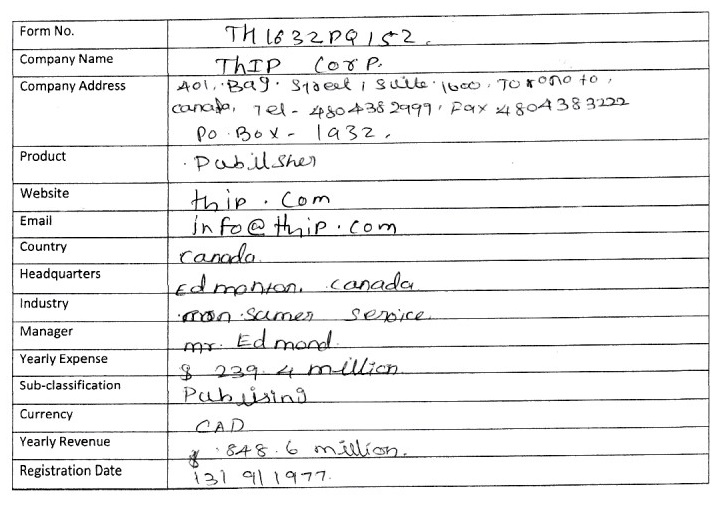 Form No. TH1632PQ152.
Company Name ThIP Corp.
Company Address 401, Bay. Street, Suite. 1600. Toronoto,
canada, Tel- 4804382999, Fax 4804383222
PO. Box- 1932.
Product Pubillsher
Website thip. Com
Email info@thip.com
Country canada
Headquarters Edmonton, canada
Industry sumer service.
Manager mr. Edmond
Yearly Expense $ 239.4 million
Sub-classification Publising
Currency CAD
Yearly Revenue $ 848.6 million.
Registration Date 13/9/1977.